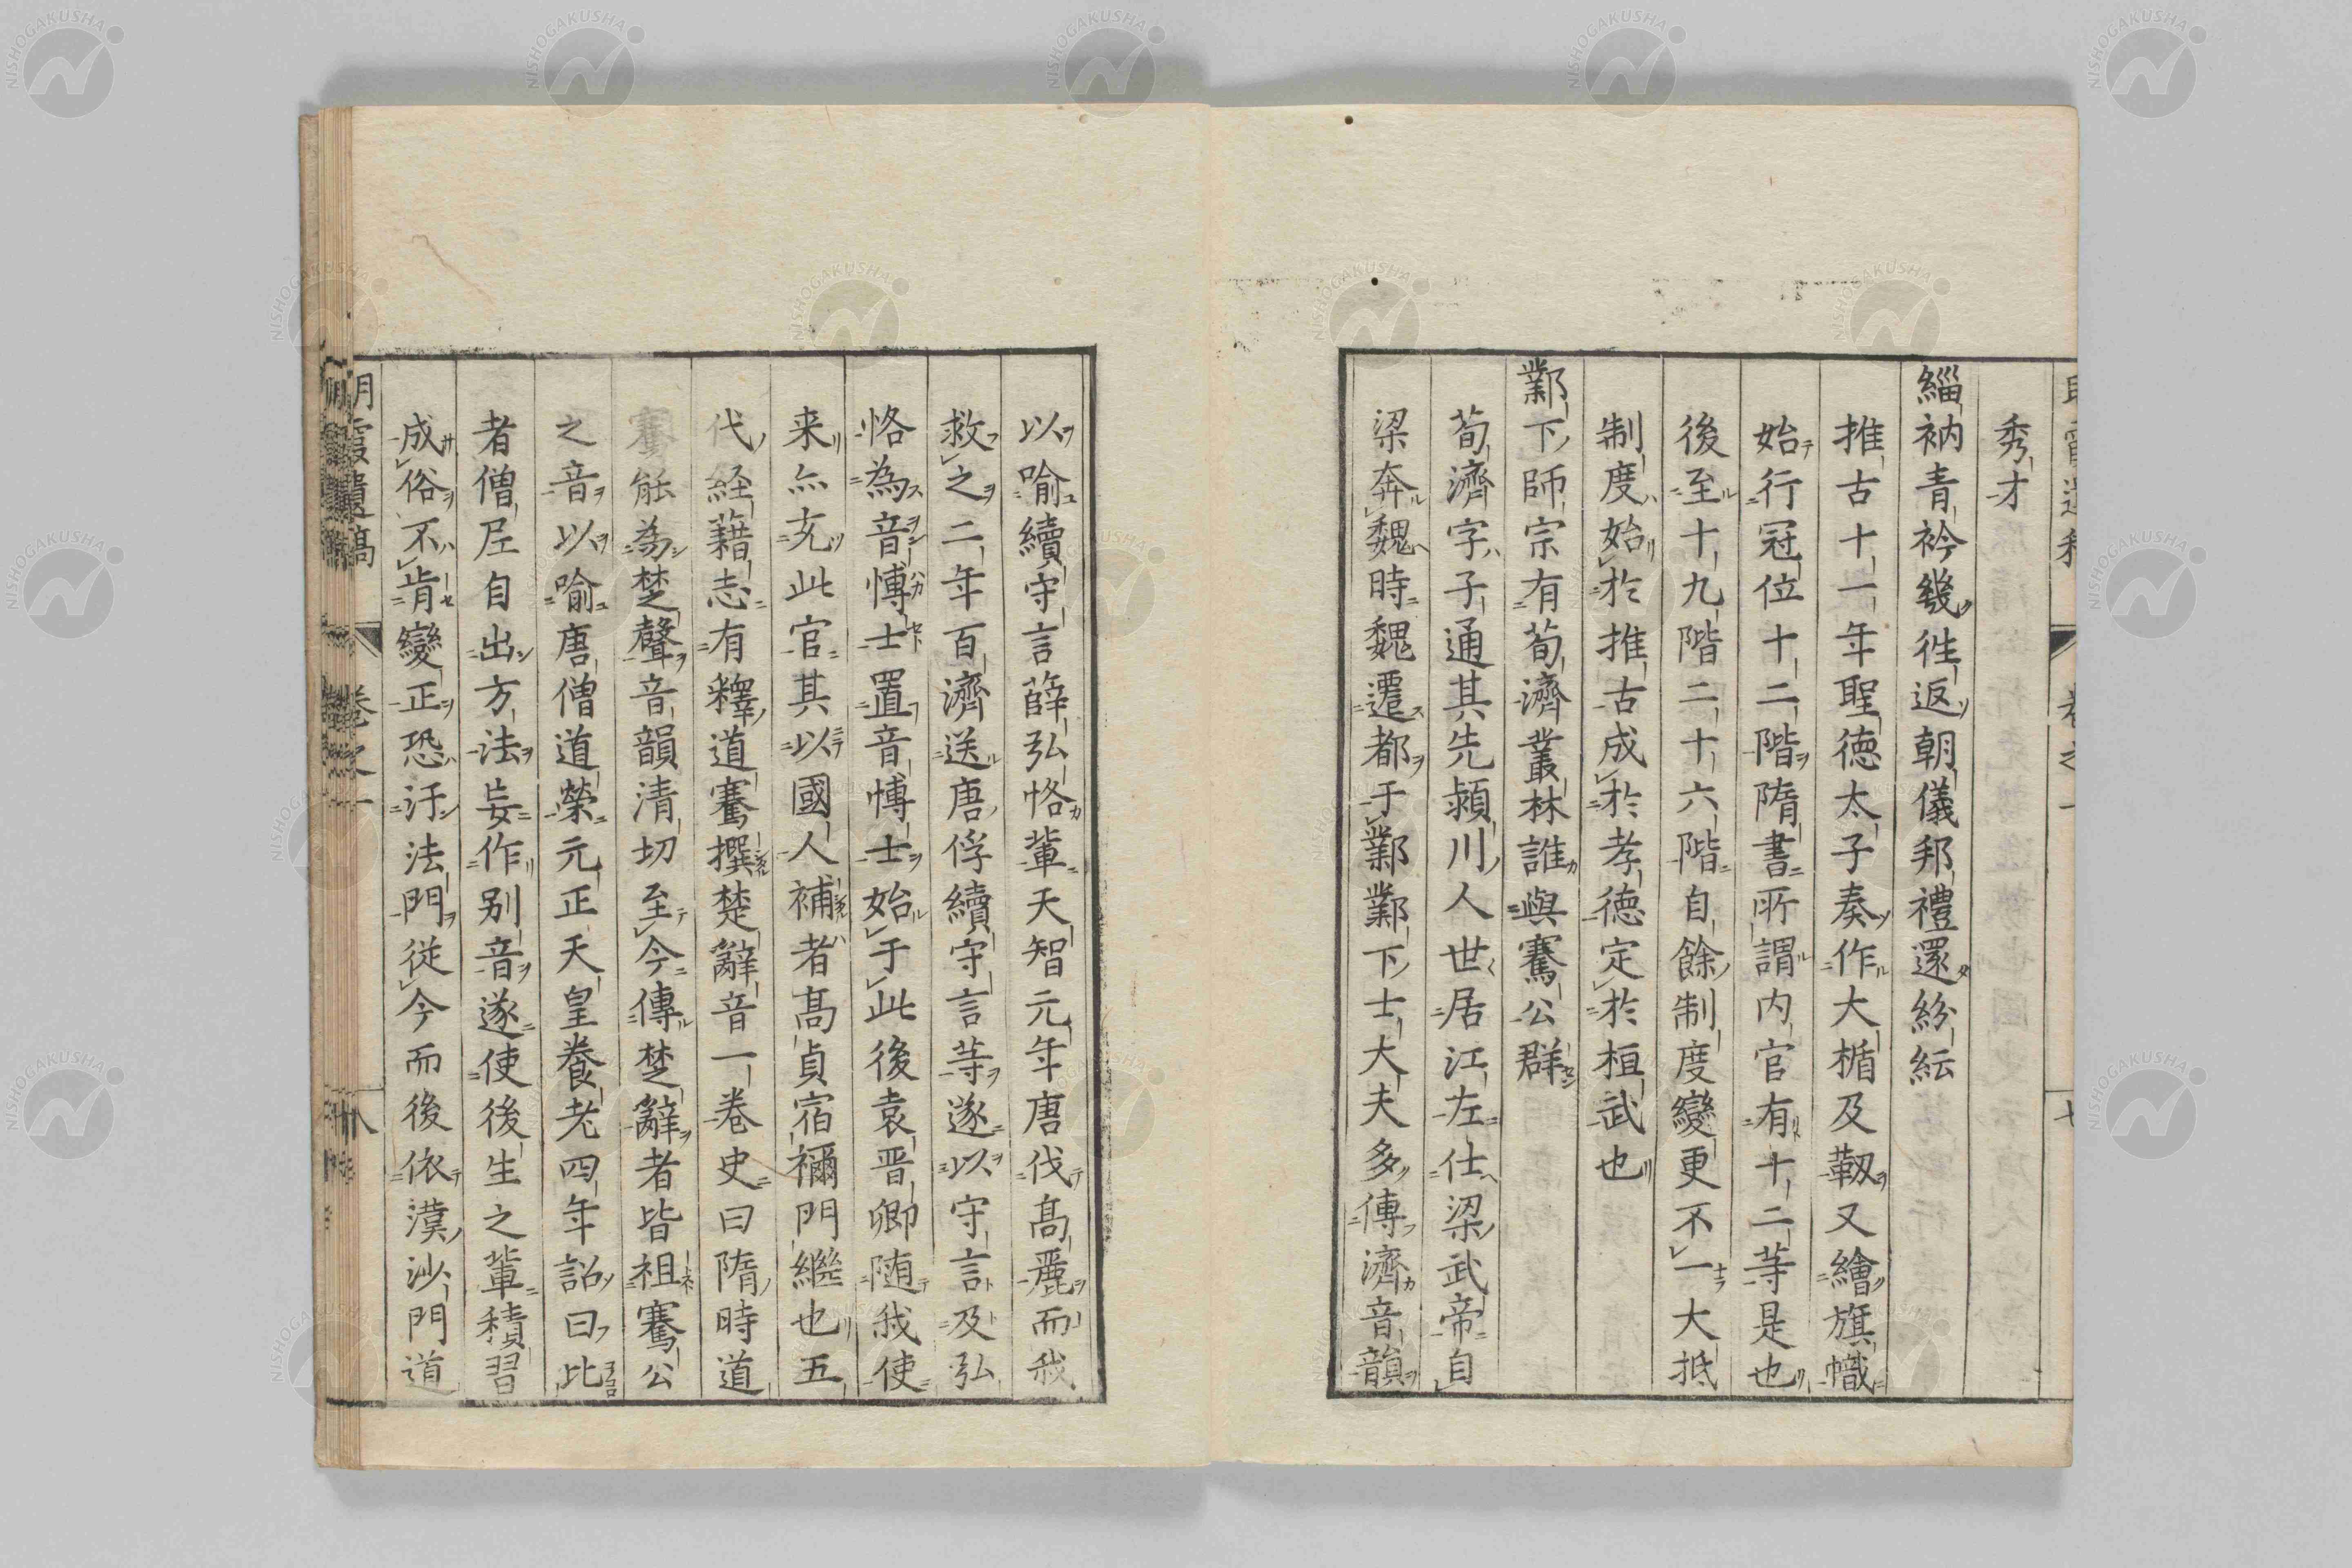 秀才
緇衲青衿幾徃返朝儀邦禮還紛紜
推古十一年聖徳太子奏作大楯及靱又繪旗幟
始行冠位十二階隋書所謂内官有十二等是也
後至十九階二十六階自餘制度變更不一大抵
制度始於推古成於孝徳定於桓武也
鄴下師宗有荀濟叢林誰與騫公群
荀濟字子通其先潁川人世居江左仕梁武帝自
梁奔魏時魏遷都于鄴鄴下士大夫多傳濟音韻
以喻續守言薛弘恪輩天智元年唐伐高麗而我
救之二年百濟送唐俘續守言等遂以守言及弘
恪為音愽士置音愽士始于此後袁晋卿随我使
来亦充此官其以國人補者高貞宿禰門継也五
代経籍志有釋道騫撰楚辭音一卷史曰隋時道
騫能為楚聲音韻清切至今傳楚辭者皆祖騫公
之音以喻唐僧道榮元正天皇養老四年詔曰比
者僧尼自出方法妄作别音遂使後生之輩積習
成俗不肯變正恐汙法門従今而後依漢沙門道
朙霞遺稿 卷之一 八